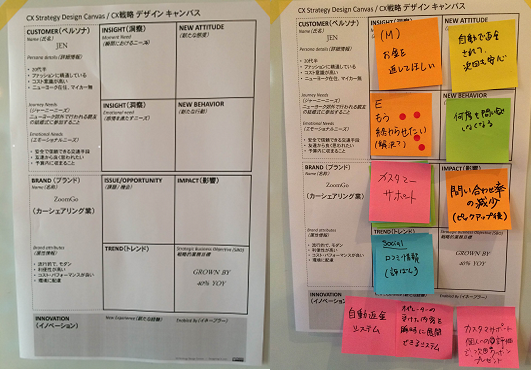 CX Strategy Design Canvas / CX戦略 デザイン キャンバス
CUSTOMER(ペルソナ)
Name (氏名)
JEN
Persona details (詳細情報)
• 20代半
• ファッションに精通している
• コスト意識が高い
• ニューヨーク在住、マイカー無
Journey Needs
(ジャーニーニーズ)
ニューヨーク郊外で行われる親友の結婚式に参加すること
Emotional Needs
(エモーショナルニーズ)
• 安全で信頼できる交通手段
• 友達から良く思われたい
• 予算内に収まること
INSIGHT(洞察)
Moment Need
(瞬間におけるニーズ)
NEW ATTITUDE
(新たな態度)
INSIGHT(洞察)
Emotional Need
(感情を満たすニーズ)
NEW BEHAVIOR
(新たな行動)
BRAND (ブランド)
Name (名称)
ZoomGo
(カーシェアリング業)
Brand attributes
(属性情報)
• 流行的で、モダン
• 利便性が高い
• コスト・パフォーマンスが良い
• 環境に配慮
ISSUE/OPPORTUNITY
(課題/機会)
IMPACT(影響)
TREND(トレンド)
Strategic Business Objective (SBO)
戦略的業務目標
GROWN BY
40% YOY
INNOVATION
(イノベーション)
New Experience (新たな経験)
Enabled By (イネーブラー)
CX Strategy Design Canvas / CX戦略 デザイン キャンバス
CUSTOMER(ペルソナ)
Name (氏名)
JEN
Persona details (詳細情報)
• 20代半
• ファッションに精通している
• コスト意識が高い
• ニューヨーク在住、マイカー無
Journey Needs
(ジャーニーニーズ)
ニューヨーク郊外で行われる親友の結婚式に参加すること
Emotional Needs
(エモーショナルニーズ)
• 安全で信頼できる交通手段
• 友達から良く思われたい
• 予算内に収まること
INSIGHT(洞察)
NEW ATTITUDE
(M)
お金を
返してほしい
自動で返金
され、
次回も安心
E
もう
終わらせたい
(解決?)
NEW BEHAVIOR
何度も問い合せ
しなくなる
BRAND (ブランド)
Name (名称)
ZoomGo
(カーシェアリング業)
Brand attributes
(属性情報)
• 流行的で、モダン
• 利便性が高い
• コスト・パフォーマンスが良い
• 環境に配慮
カスタマー
サポート
IMPACT(影響)
問い合わせ率
の減少
(ピックアップ後)
TREND(トレンド)
Social
口コミ情報
Strategic Business Objective (SBO)
戦略的業務目標
GROWN BY
40% YOY
INNOVATION
(イノベーション)
自動返金
システム
オペレーターの
受けた内容を
瞬時に展開
できるシステム
カスタマサポート
個人への
で、次回クーポン
プレゼント